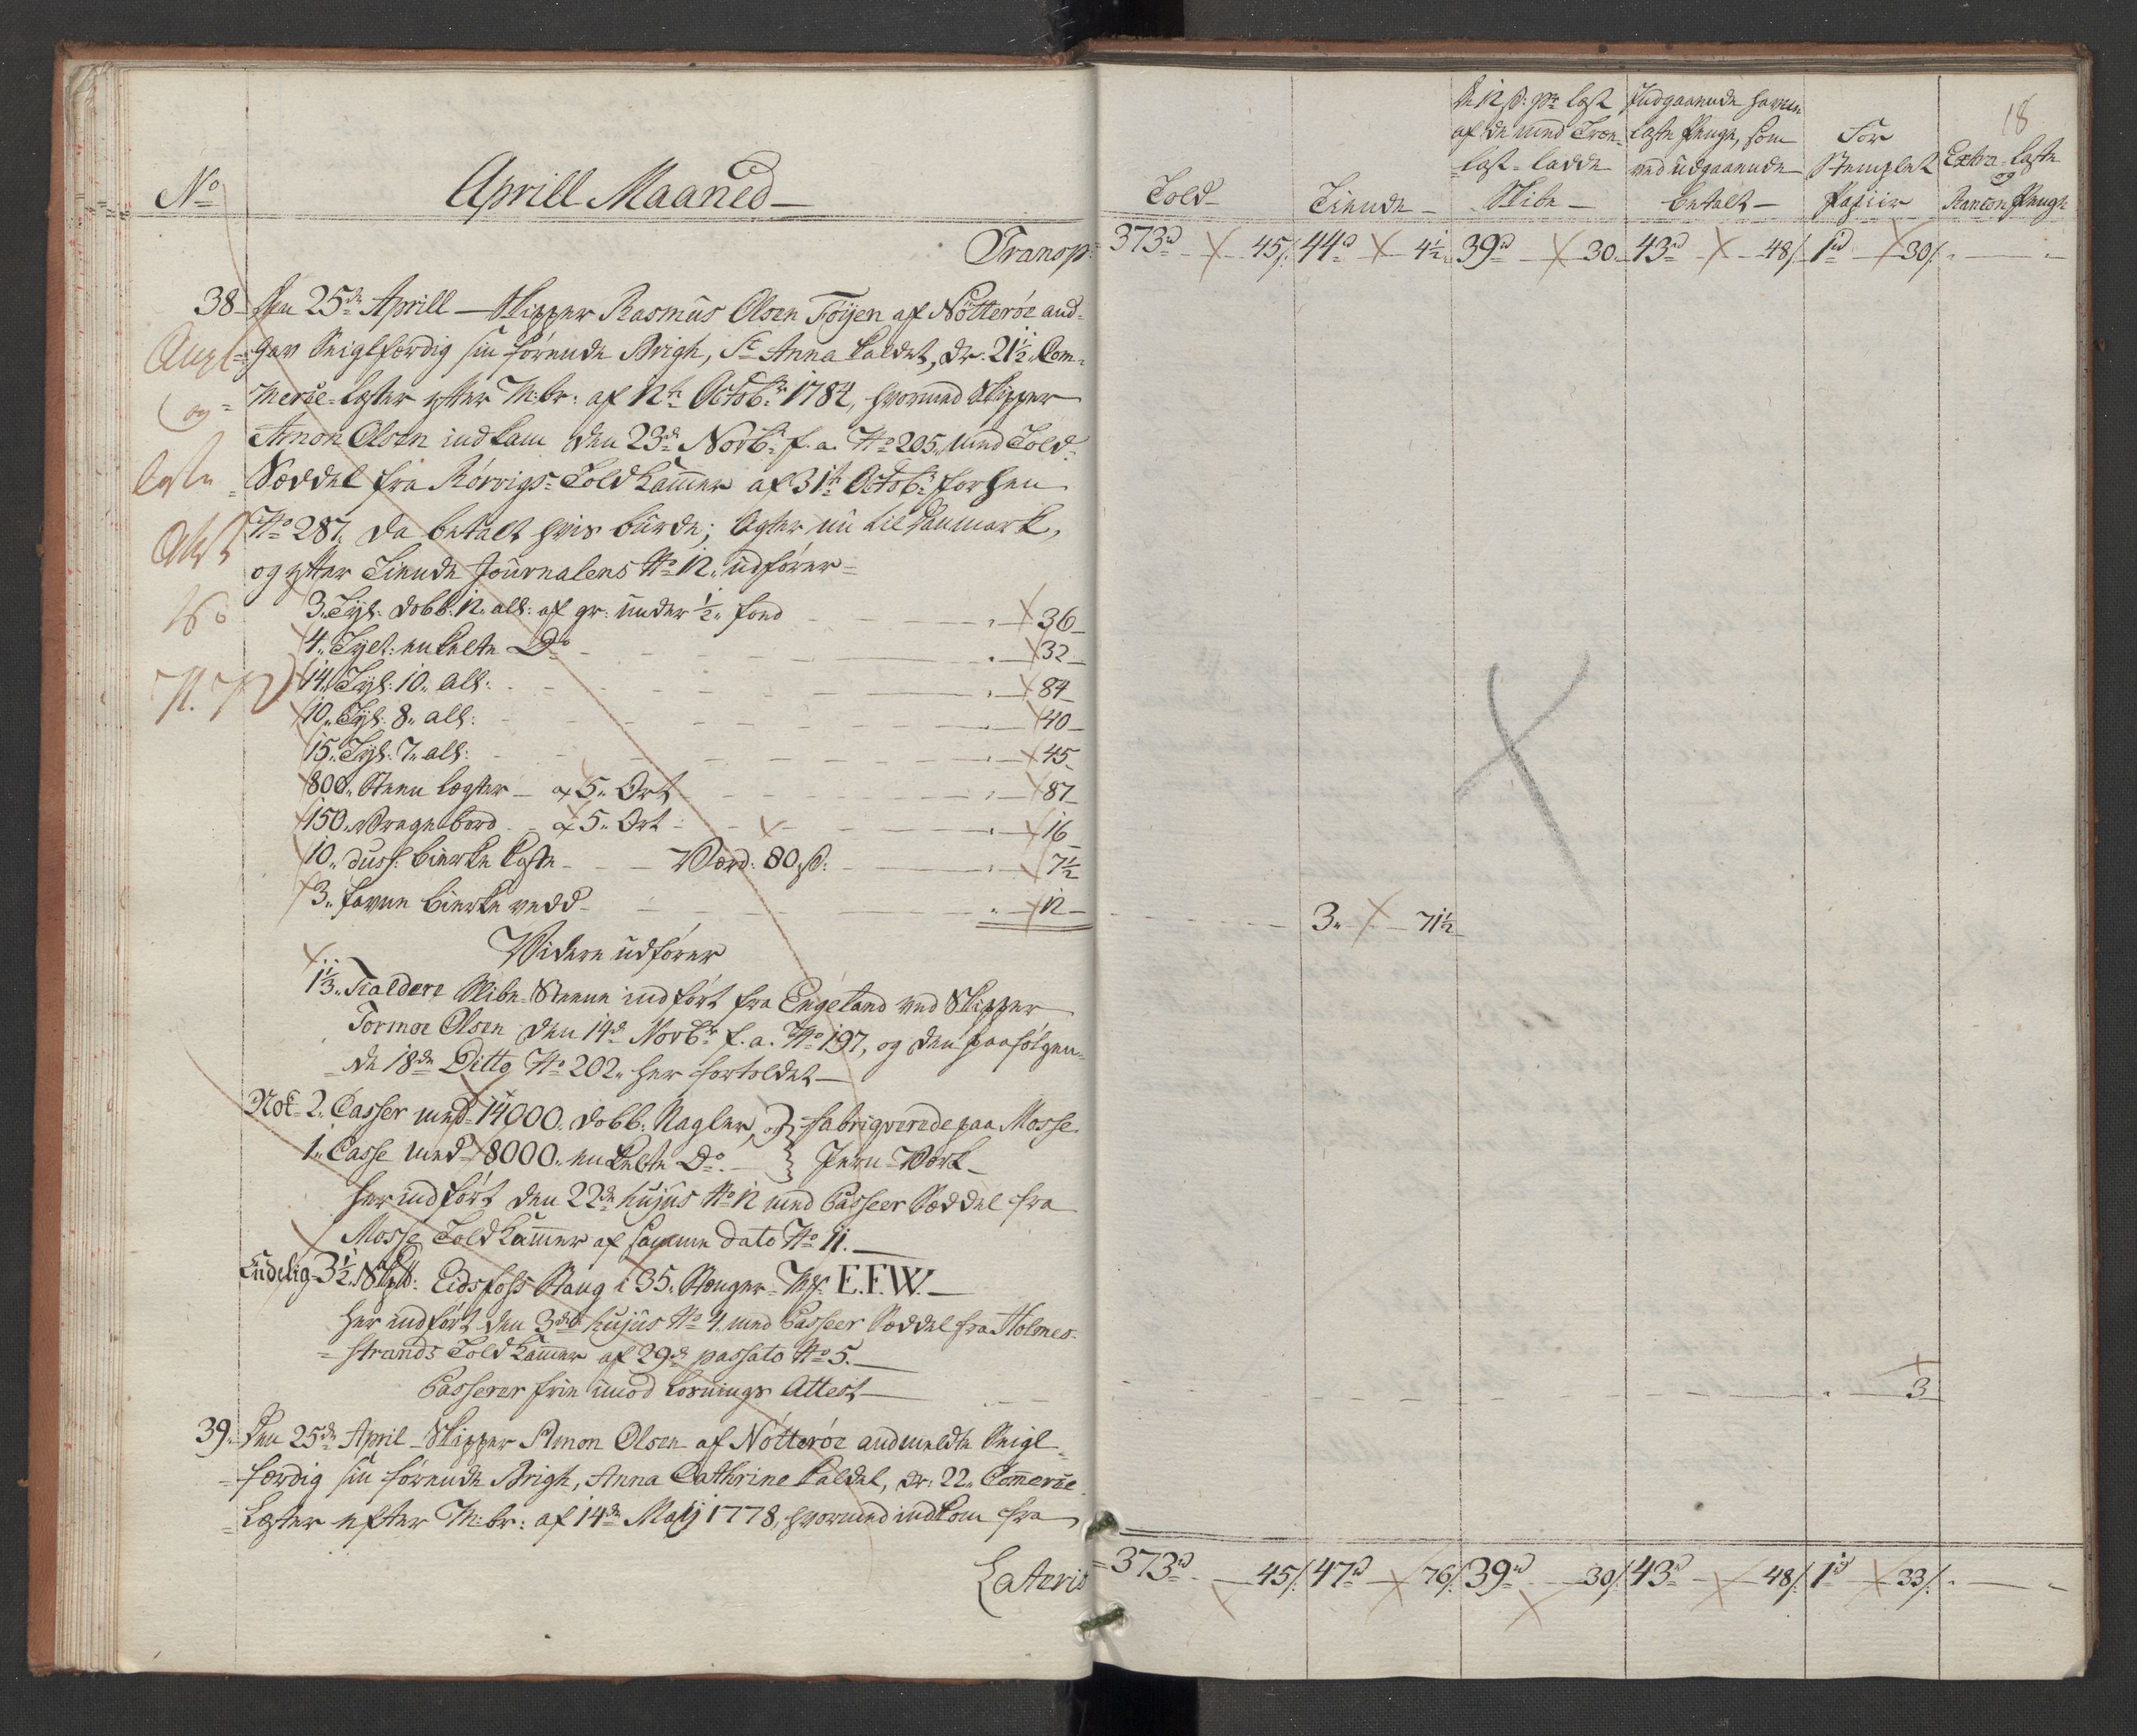 No
Aprill Maaned
Transp:
38 Den 25de Aprill – Skipper Rasmus Olsen Föyen af Nötteröe and-
gav Seiglfærdig sin förende Brigh, St Anna kaldet, dr. 21½ Com-
merce-læster efter M:br: af 12te Octobr 1784, hvormed Skipper
Amon Olsen indkam den 23de Novbr f. a. No 205, med Told-
Sæddel fra Rörvigs Toldkammer af 31te Octobr forhen
No 287, da betalt hvis burde; Agter nu til Danmark,
og efter Tiende Journalens No 12 udförer
og
3. Tylt: dobb. 12 all: af gr: under ½ fond 36
4. Tylt: enkelte Do 32
14. Tylt: 10. all: 84
10. Tylt: 8. all: 40
15. Tylt: 7. all: 45
800. Steen lægter a 5. Ort 87
150. Vragebord a 5. Ort 16
10. duss: bierke koste Værd: 80 s: 7½
3. favne bierke vedd 12
Videre udförer
1⅓. Tialdere Slibe-Steene indfört fra Engeland ved Skipper
Tormoe Olsen den 14de Novbr f. a. No 197, og den paafölgen-
de 18de Ditto No 202. her fortoldet
Nok 2. Casser med 14000. dobb: Nagler, og } fabriqverede paa Mosse
1. Casse med 8000. enkelte Do. } Jern-Værk
her indfört den 22de hujus No 12 med Passeer Sæddel fra
Mosse Toldkammer af samme dato No 11.
Endelig 3½. Skpd: Eidsfoss Stang i 35. Stænger Mk: E.F.W.
her indfört den 3die hujus No 4. med Passeer Sæddel fra Holmes-
strands Toldkammer af 29de passato No 5.
Passerer frie imod Losnings Attest
39. Den 25de April – Skipper Amon Olsen af Nötteröe andmeldte Seigl-
færdig sin förende Brigh, Anna Cathrine kaldet, dr: 22. Commerce
Læster efter M:br: af 14de Maij 1778, hvormed indkom fra
Lateris
18
Told
Tiende
De 12 s: pr læst af de med Træ-
last-ladde
Skibe
Indgaaende havne
laste Penge, som
ved udgaaende
betalt
For
Stemplet
Papiir
Extra-laste
og
Ranzon Penge
373d 45/: 44d 4½ 39d 30. 43d 48/. 1d 30/.
3. 71½
3
373d 45/: 47d 76/. 39d 30/ 43d 48/: 1d 33/.